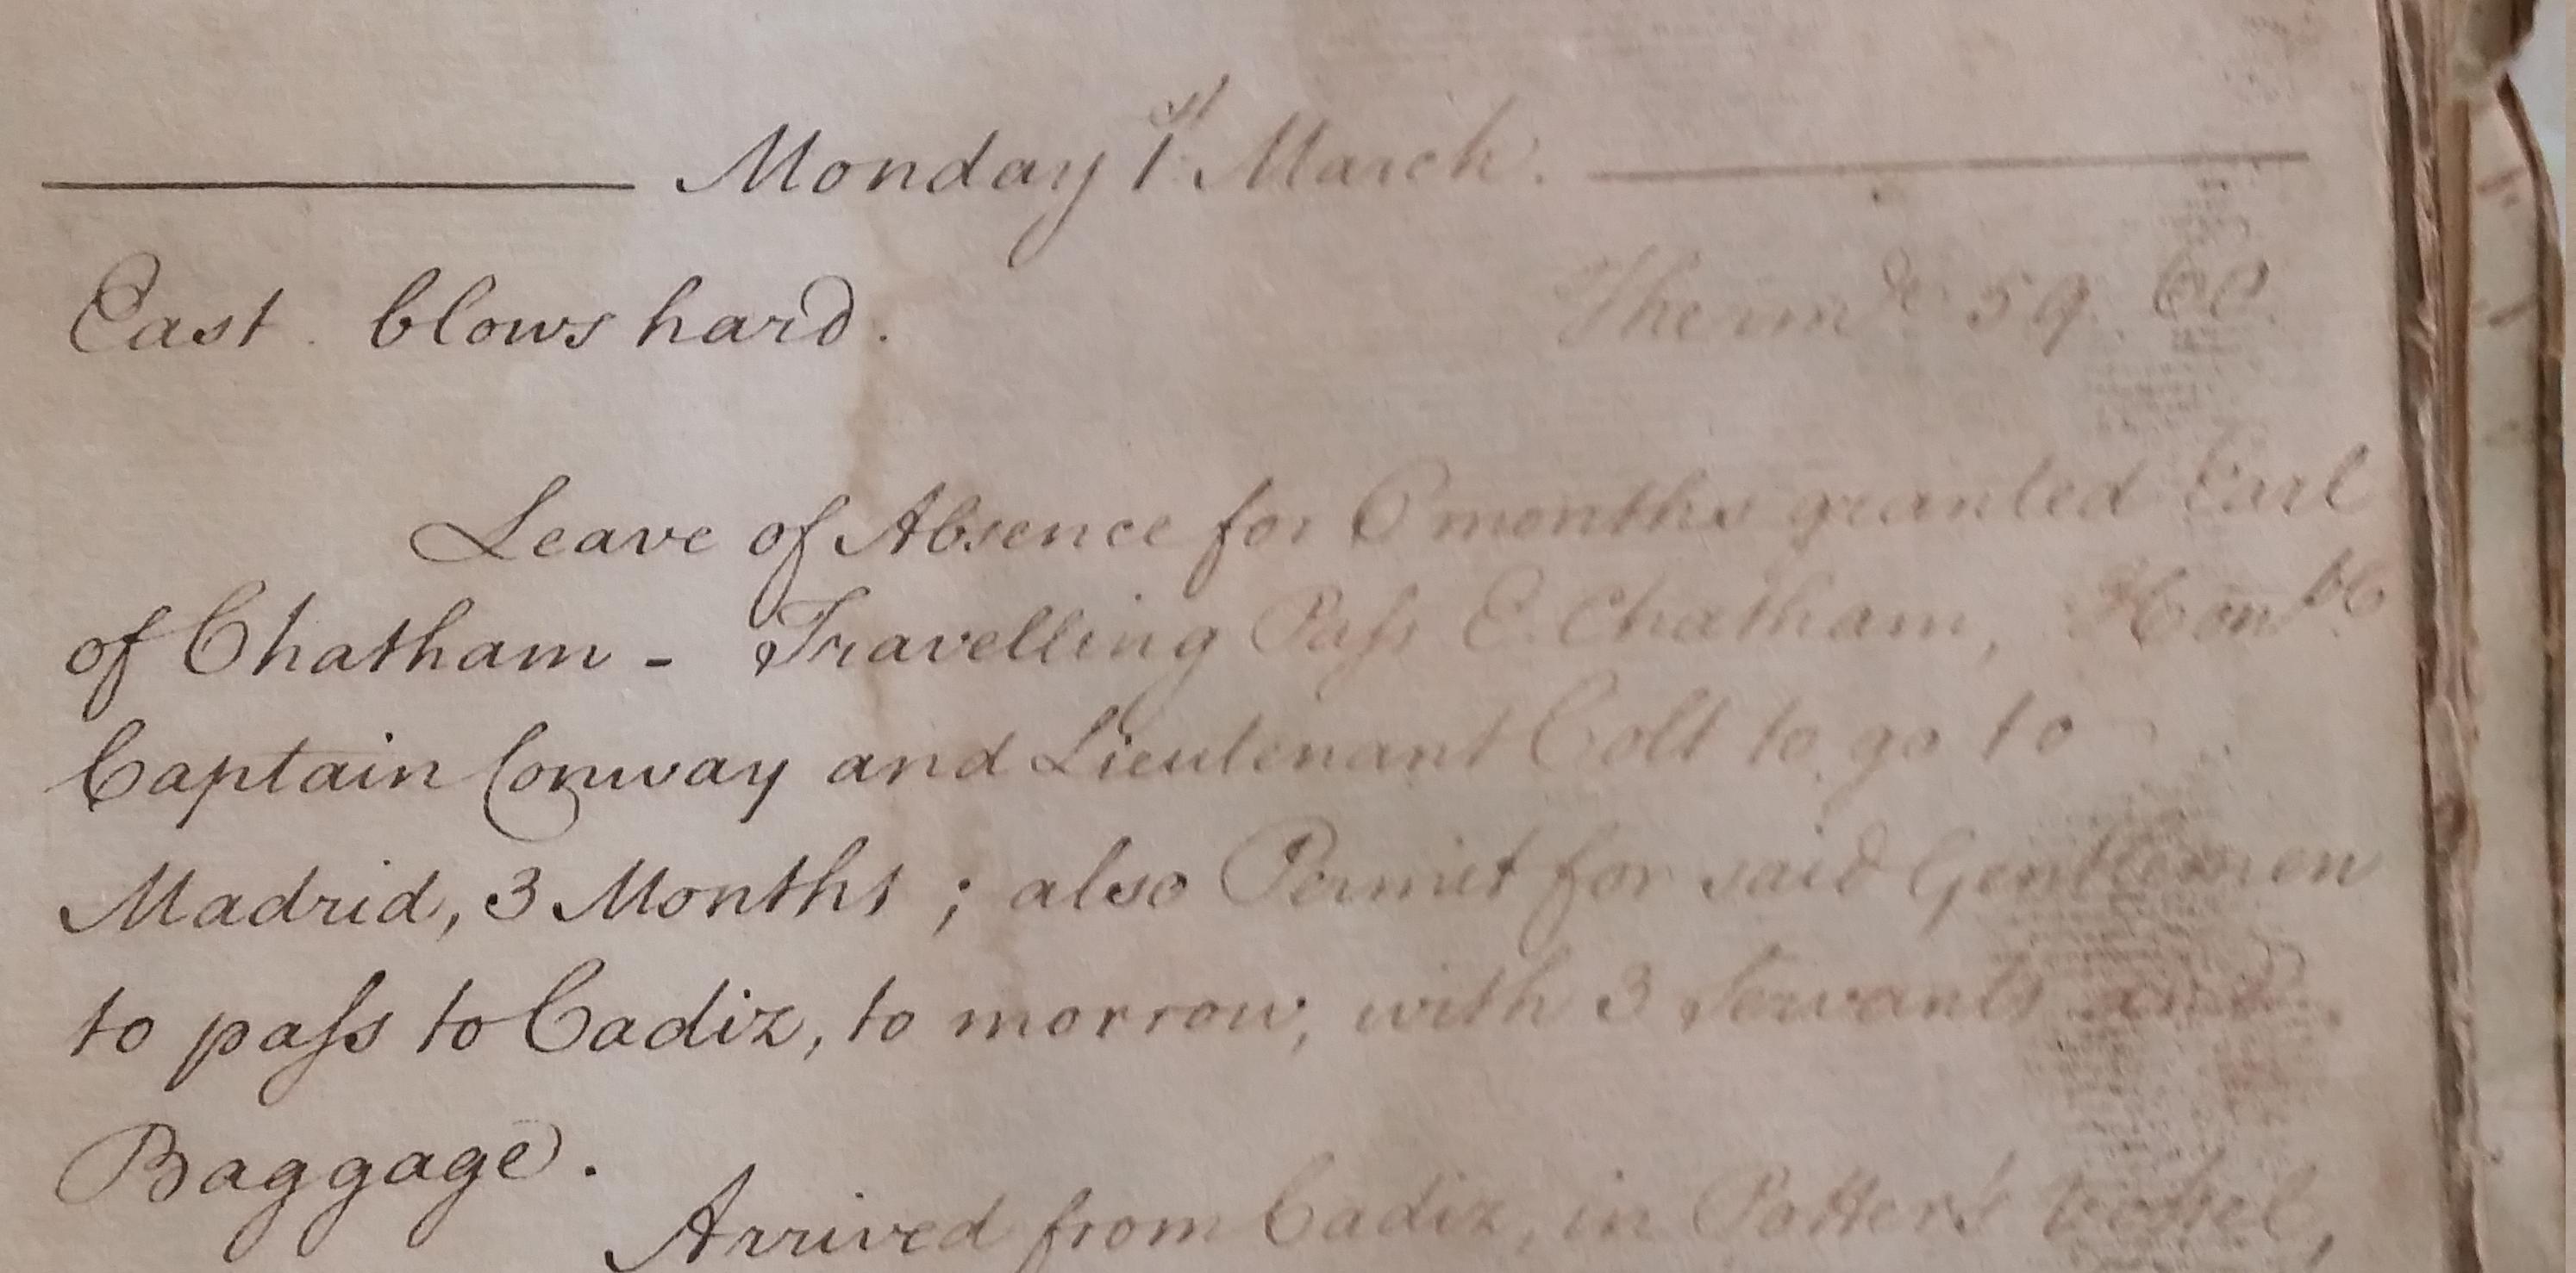 Monday 1st March.
East. blows hard. Thermr. 59. 60.
Leave of Absence for 6 months granted Earl
of Chatham - Travelling Paſs E. Chatham, Honble
Captain Conway and Lieutenant Colt to go to
Madrid, 3 Months; also Permit for said Gentlemen
to paſs to Cadiz, to morrow, with 3 Servants and
Baggage.
Arrived from Cadiz, in Potter's Veſsel,